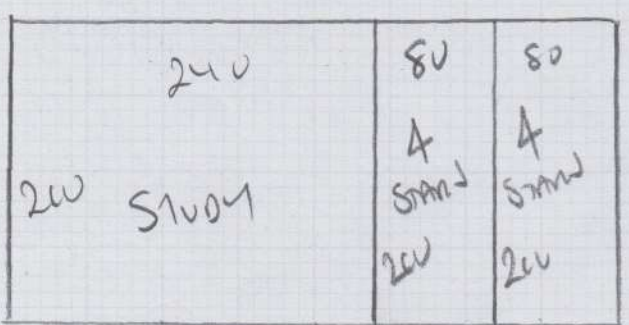 240
200 STUDY
80
4
STAND
200
80
4
STAND
200